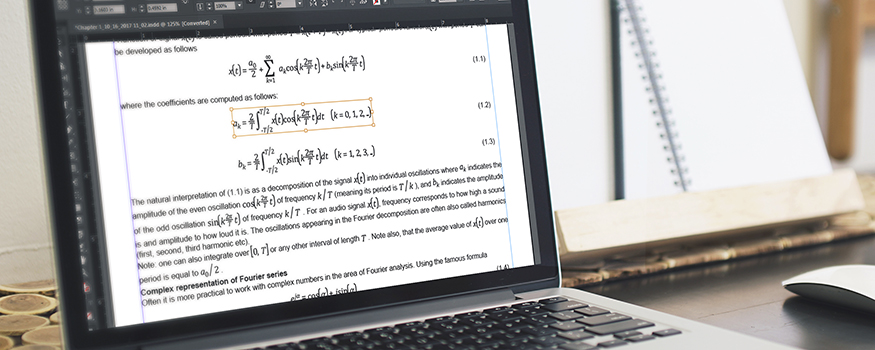 *Chapter 1_10_16_2017 11_02.indd @ 125% [Converted]
be developed as follows
x(t) = a₀/2 + ∑_{k=1}^{∞} a_k cos(k 2π/T t) + b_k sin(k 2π/T t) (1.1)
where the coefficients are computed as follows:
a_k = 2/T ∫_{-T/2}^{T/2} x(t)cos(k 2π/T t)dt (k = 0, 1, 2, ..) (1.2)
b_k = 2/T ∫_{-T/2}^{T/2} x(t)sin(k 2π/T t)dt (k = 1, 2, 3, ..) (1.3)
The natural interpretation of (1.1) is as a decomposition of the signal x(t) into individual oscillations where a_k indicates the
amplitude of the even oscillation cos(k 2π/T t) of frequency k/T (meaning its period is T/k), and b_k indicates the amplitude
of the odd oscillation sin(k 2π/T t) of frequency k/T. For an audio signal x(t), frequency corresponds to how high a sound
is and amplitude to how loud it is. The oscillations appearing in the Fourier decomposition are often also called harmonics
(first, second, third harmonic etc).
Note: one can also integrate over [0, T] or any other interval of length T. Note also, that the average value of x(t) over one
period is equal to a₀/2.
Complex representation of Fourier series
Often it is more practical to work with complex numbers in the area of Fourier analysis. Using the famous formula